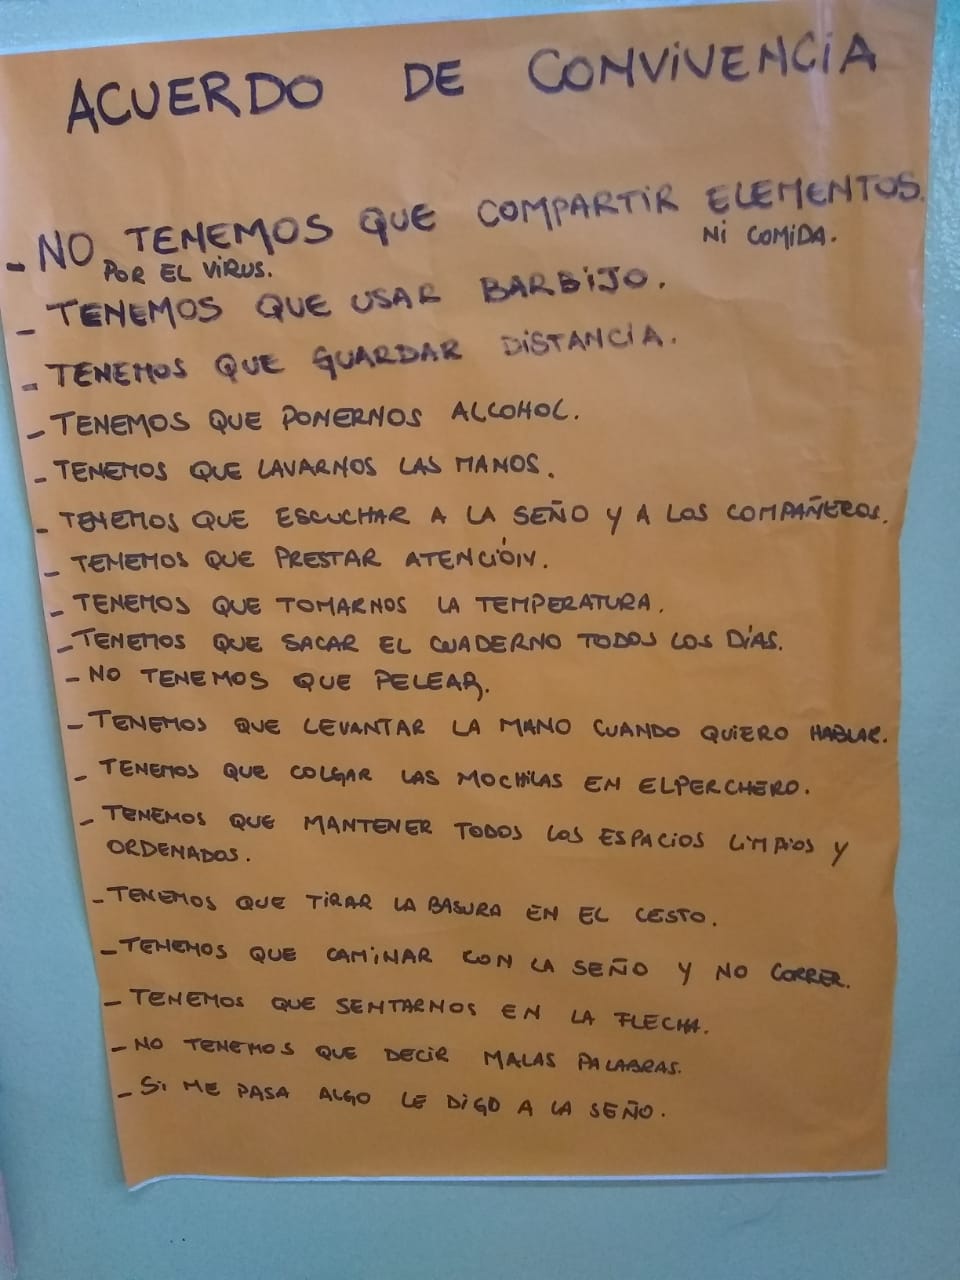 ACUERDO DE CONVIVENCIA
- NO TENEMOS QUE COMPARTIR ELEMENTOS.
POR EL VIRUS. NI COMIDA.
- TENEMOS QUE USAR BARBIJO.
- TENEMOS QUE GUARDAR DISTANCIA.
- TENEMOS QUE PONERNOS ALCOHOL.
- TENEMOS QUE LAVARNOS LAS MANOS.
- TENEMOS QUE ESCUCHAR A LA SEÑO Y A LOS COMPAÑEROS.
- TENEMOS QUE PRESTAR ATENCIÓN.
- TENEMOS QUE TOMARNOS LA TEMPERATURA.
- TENEMOS QUE SACAR EL CUADERNO TODOS LOS DÍAS.
- NO TENEMOS QUE PELEAR.
- TENEMOS QUE LEVANTAR LA MANO CUANDO QUIERO HABLAR.
- TENEMOS QUE COLGAR LAS MOCHILAS EN EL PERCHERO.
- TENEMOS QUE MANTENER TODOS LOS ESPACIOS LIMPIOS Y
ORDENADOS.
- TENEMOS QUE TIRAR LA BASURA EN EL CESTO.
- TENEMOS QUE CAMINAR CON LA SEÑO Y NO CORRER.
- TENEMOS QUE SENTARNOS EN LA FLECHA.
- NO TENEMOS QUE DECIR MALAS PALABRAS.
- SI ME PASA ALGO LE DIGO A LA SEÑO.